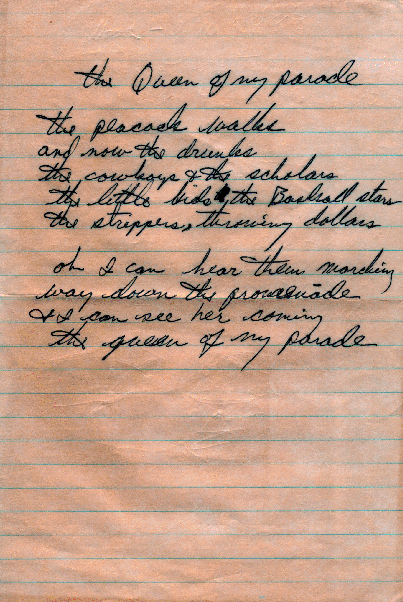 the Queen of my parade
the peacock walks
and now the drunks
the cowboys & the scholars
the little kids, the Baseball stars
the strippers, throwing dollars
oh I can hear them marching
way down the promenade
& I can see her coming
the queen of my parade